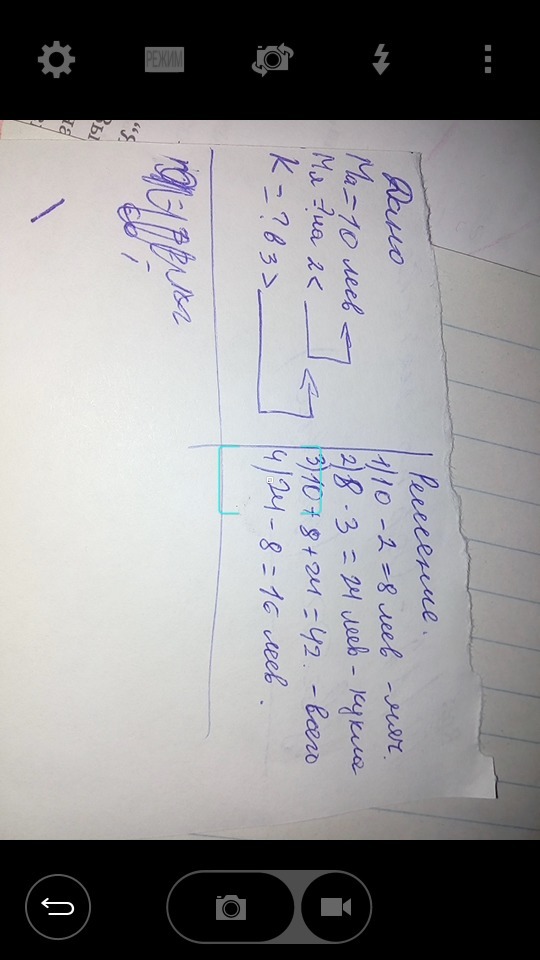 РЕЖИМ
Дано
Ма = 10 леев
Мя = ? на 2 <
К = ? в 3 >
Решение.
1) 10 - 2 = 8 леев - мяч.
2) 8 · 3 = 24 леев - кукла
3) 10 + 8 + 24 = 42. - всего
4) 24 - 8 = 16 леев.